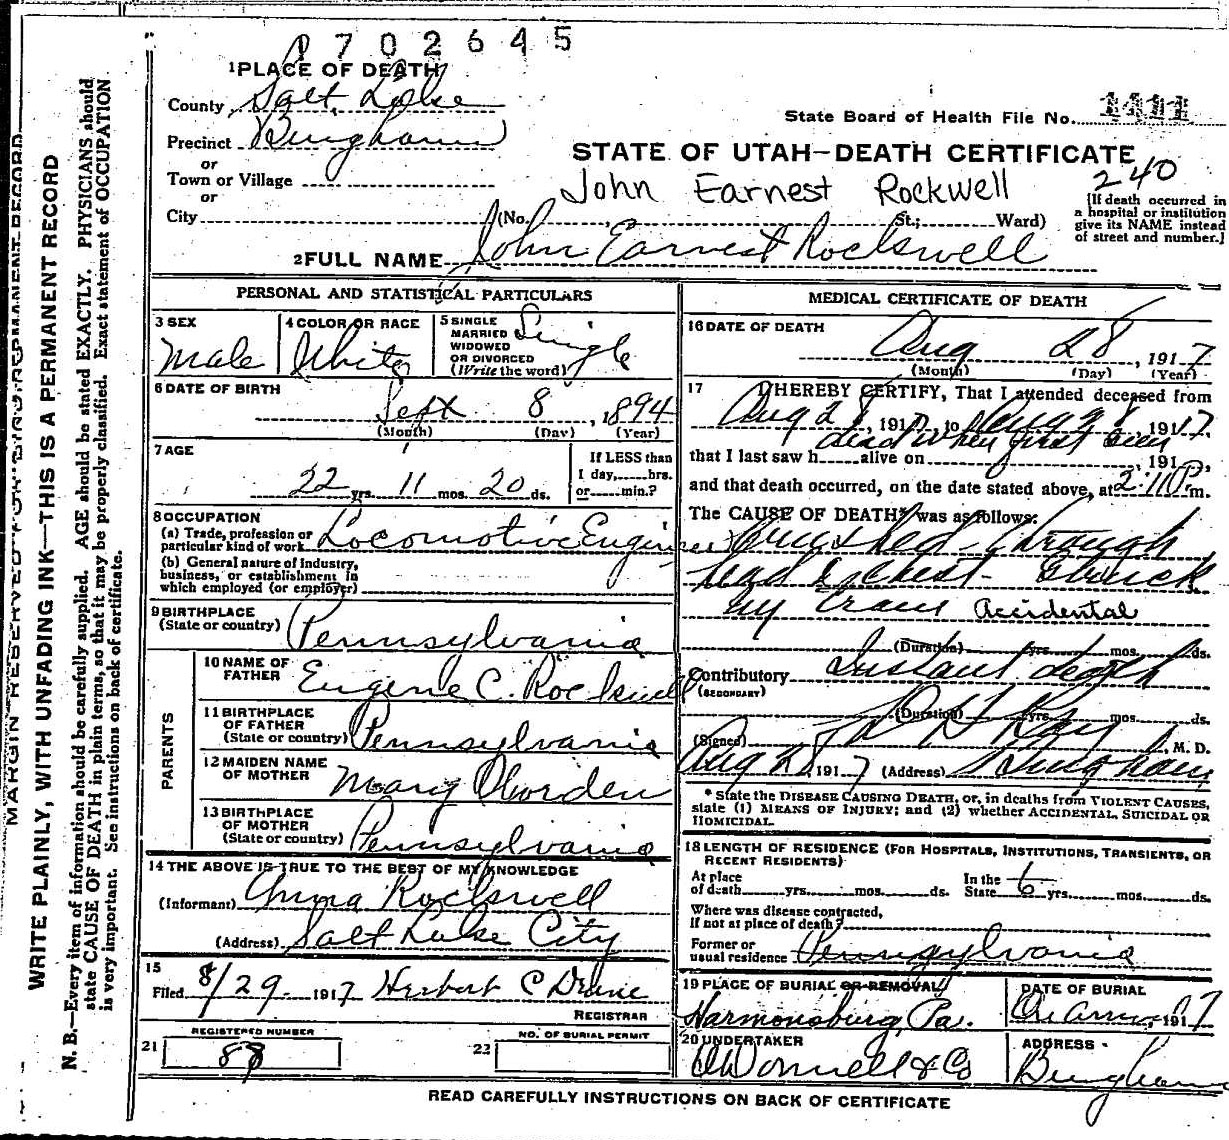 1702645
1 PLACE OF DEATH
County Salt Lake
State Board of Health File No. 1411
Precinct Bingham
or
Town or Village
or
City
STATE OF UTAH—DEATH CERTIFICATE
240
John Earnest Rockwell
(No. St.; Ward)
[If death occurred in
a hospital or institution
give its NAME instead
of street and number.]
2 FULL NAME John Earnest Rockwell
PERSONAL AND STATISTICAL PARTICULARS
3 SEX
Male
4 COLOR OR RACE
White
5 SINGLE
MARRIED
WIDOWED
OR DIVORCED
(Write the word)
Single
6 DATE OF BIRTH
Sept 8, 1894
(Month) (Day) (Year)
7 AGE
22 yrs. 11 mos. 20 ds.
If LESS than
1 day, hrs.
or min.?
8 OCCUPATION
(a) Trade, profession or
particular kind of work Locomotive Engineer
(b) General nature of industry,
business, or establishment in
which employed (or employer)
9 BIRTHPLACE
(State or country) Pennsylvania
PARENTS
10 NAME OF
FATHER Eugene C. Rockwell
11 BIRTHPLACE
OF FATHER
(State or country) Pennsylvania
12 MAIDEN NAME
OF MOTHER Mary
13 BIRTHPLACE
OF MOTHER
(State or country) Pennsylvania
14 THE ABOVE IS TRUE TO THE BEST OF MY KNOWLEDGE
(Informant) Anna Rockwell
(Address) Salt Lake City
15
Filed 8/29 1917 Herbert C
REGISTRAR
REGISTERED NUMBER
21 88
NO. OF BURIAL PERMIT
22
MEDICAL CERTIFICATE OF DEATH
16 DATE OF DEATH
Aug 28, 1917
(Month) (Day) (Year)
17 I HEREBY CERTIFY, That I attended deceased from
Aug 28, 1917, to Aug 28, 1917,
dead when first seen
that I last saw h alive on , 191 ,
and that death occurred, on the date stated above, at 2:10 P. m.
The CAUSE OF DEATH* was as follows:
Crushed through
head & chest - Struck
by train Accidental
(Duration) yrs. mos. ds.
Contributory Instant death
(SECONDARY)
(Duration) yrs. mos. ds.
(Signed) Ray, M. D.
Aug 28, 1917 (Address) Bingham
* State the DISEASE CAUSING DEATH, or, in deaths from VIOLENT CAUSES,
state (1) MEANS OF INJURY; and (2) whether ACCIDENTAL, SUICIDAL OR
HOMICIDAL.
18 LENGTH OF RESIDENCE (FOR HOSPITALS, INSTITUTIONS, TRANSIENTS, OR
RECENT RESIDENTS)
At place
of death yrs. mos. ds.
In the
State 6 yrs. mos. ds.
Where was disease contracted,
if not at place of death?
Former or
usual residence Pennsylvania
19 PLACE OF BURIAL OR REMOVAL
Harmonsburg, Pa.
DATE OF BURIAL
, 1917
20 UNDERTAKER
O'Donnell & Co
ADDRESS
Bingham
READ CAREFULLY INSTRUCTIONS ON BACK OF CERTIFICATE
MARGIN RESERVED FOR BINDING—PERMANENT RECORD
WRITE PLAINLY, WITH UNFADING INK—THIS IS A PERMANENT RECORD
N. B.—Every item of information should be carefully supplied. AGE should be stated EXACTLY. PHYSICIANS should
state CAUSE OF DEATH in plain terms, so that it may be properly classified. Exact statement of OCCUPATION
is very important. See instructions on back of certificate.